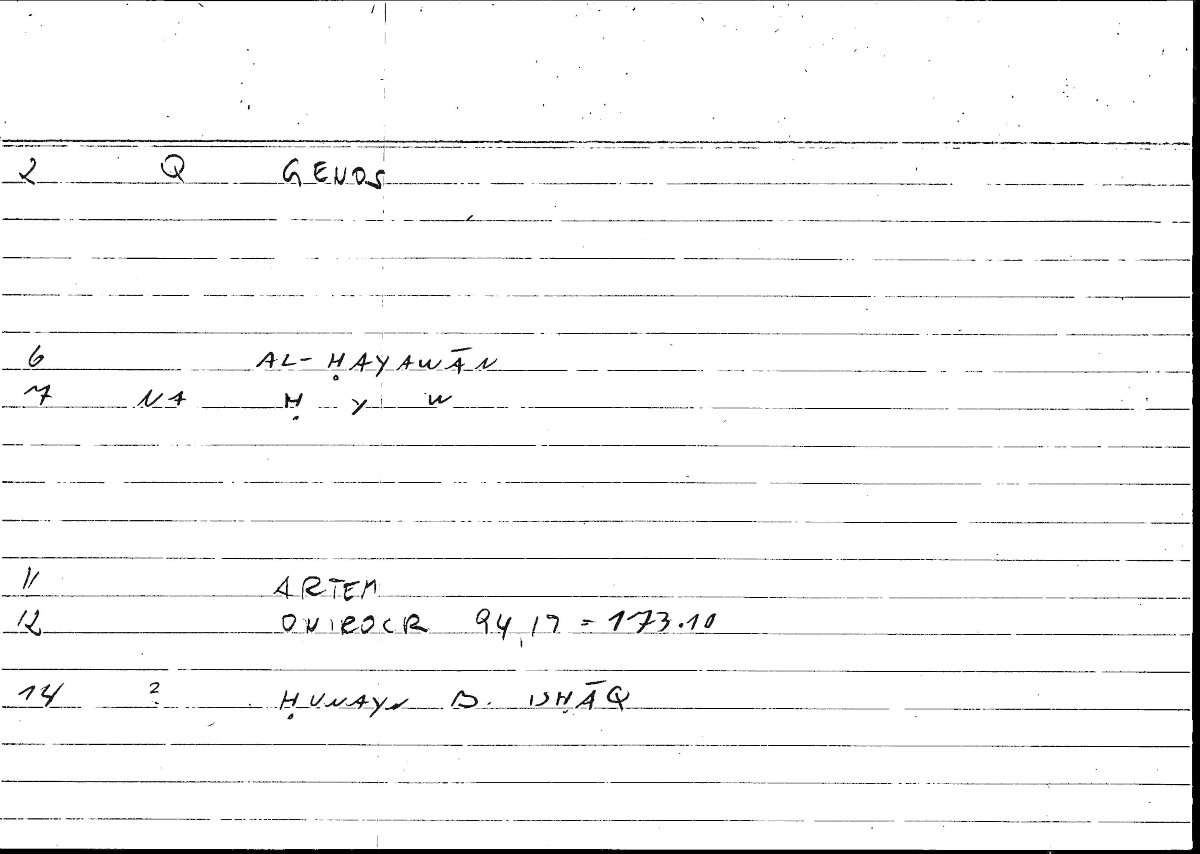 2 Q GENOS
6 AL-ḤAYAWĀN
7 NA Ḥ Y W
11 ARTEM
12 ONIROCR 94,17 = 173.10
14 ? ḤUNAYN B. ISḤĀQ